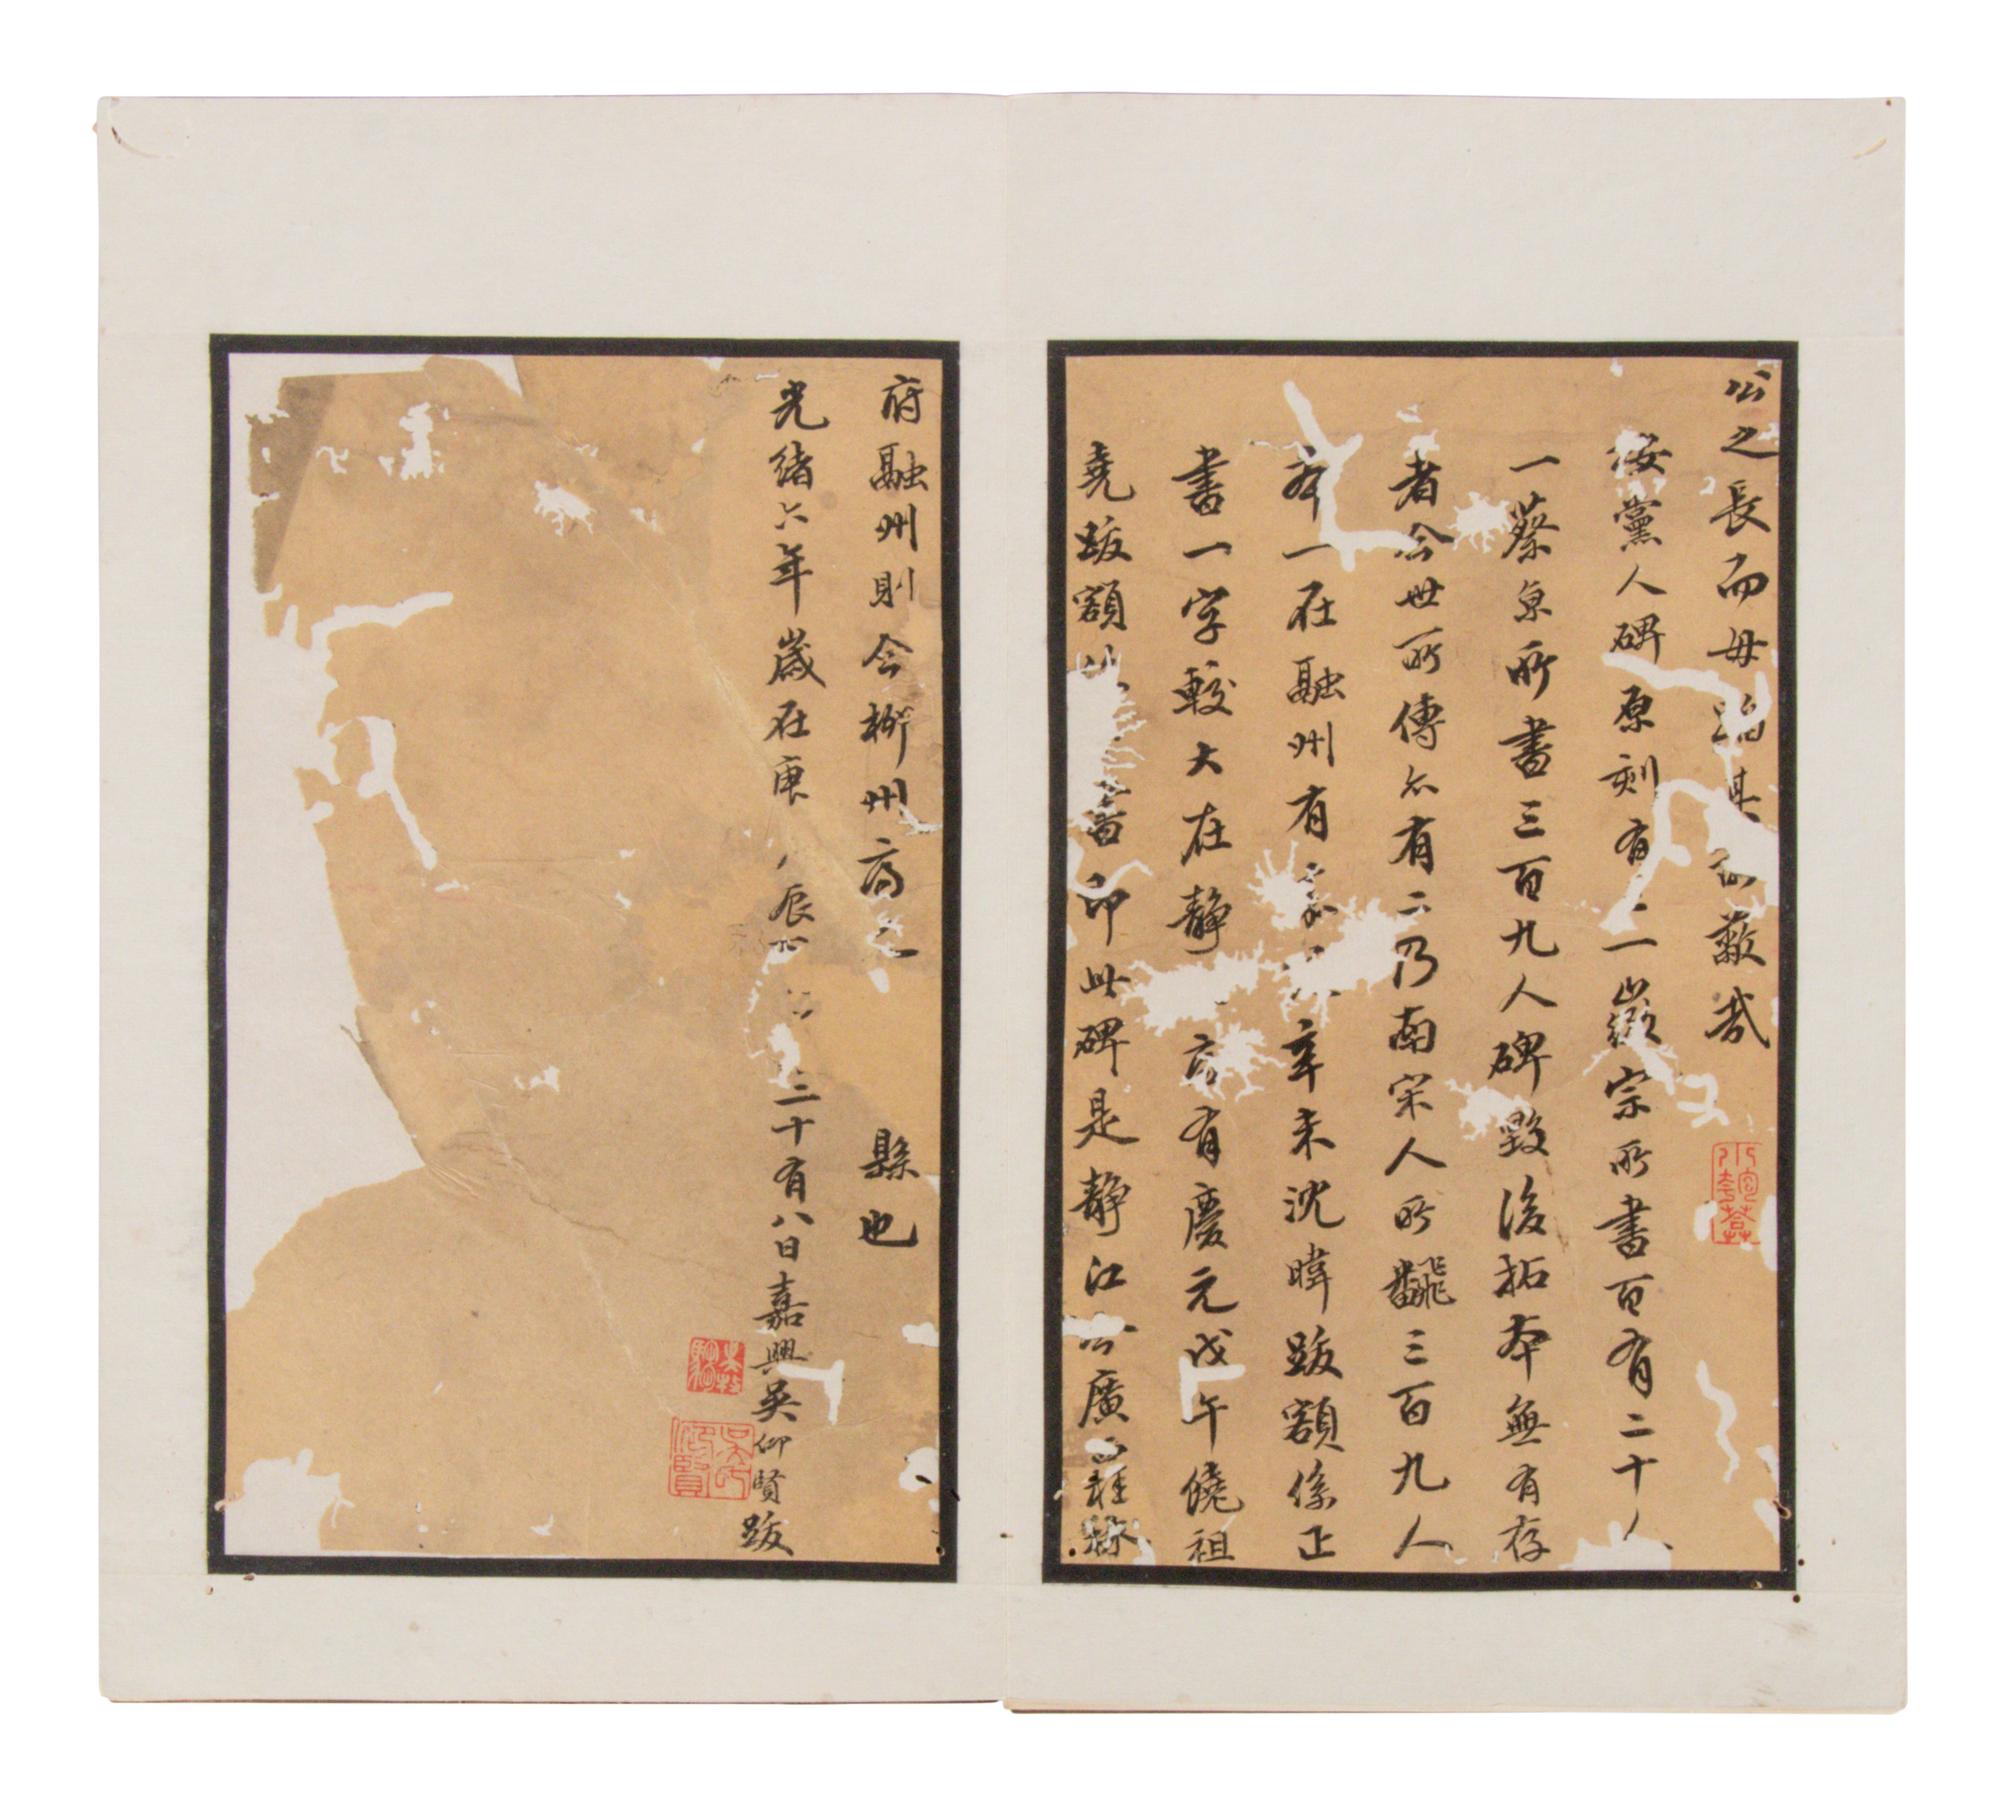 公之長而毋蹈其所蔽哉
按黨人碑原刻有二一徽宗所書百有二十人
一蔡京所書三百九人碑毀後拓本無有存
者今世所傳亦有二乃南宋人所翻三百九人
本一在融州有嘉辛未沈暐跋額係正
書一字較大在靜有慶元戊午饒祖
堯跋額書即此碑是靜江今廣西桂林
府融州則今柳州府之縣也
光緒六年歲在庚辰三十有八日嘉興吳仰賢跋
吳氏仰賢